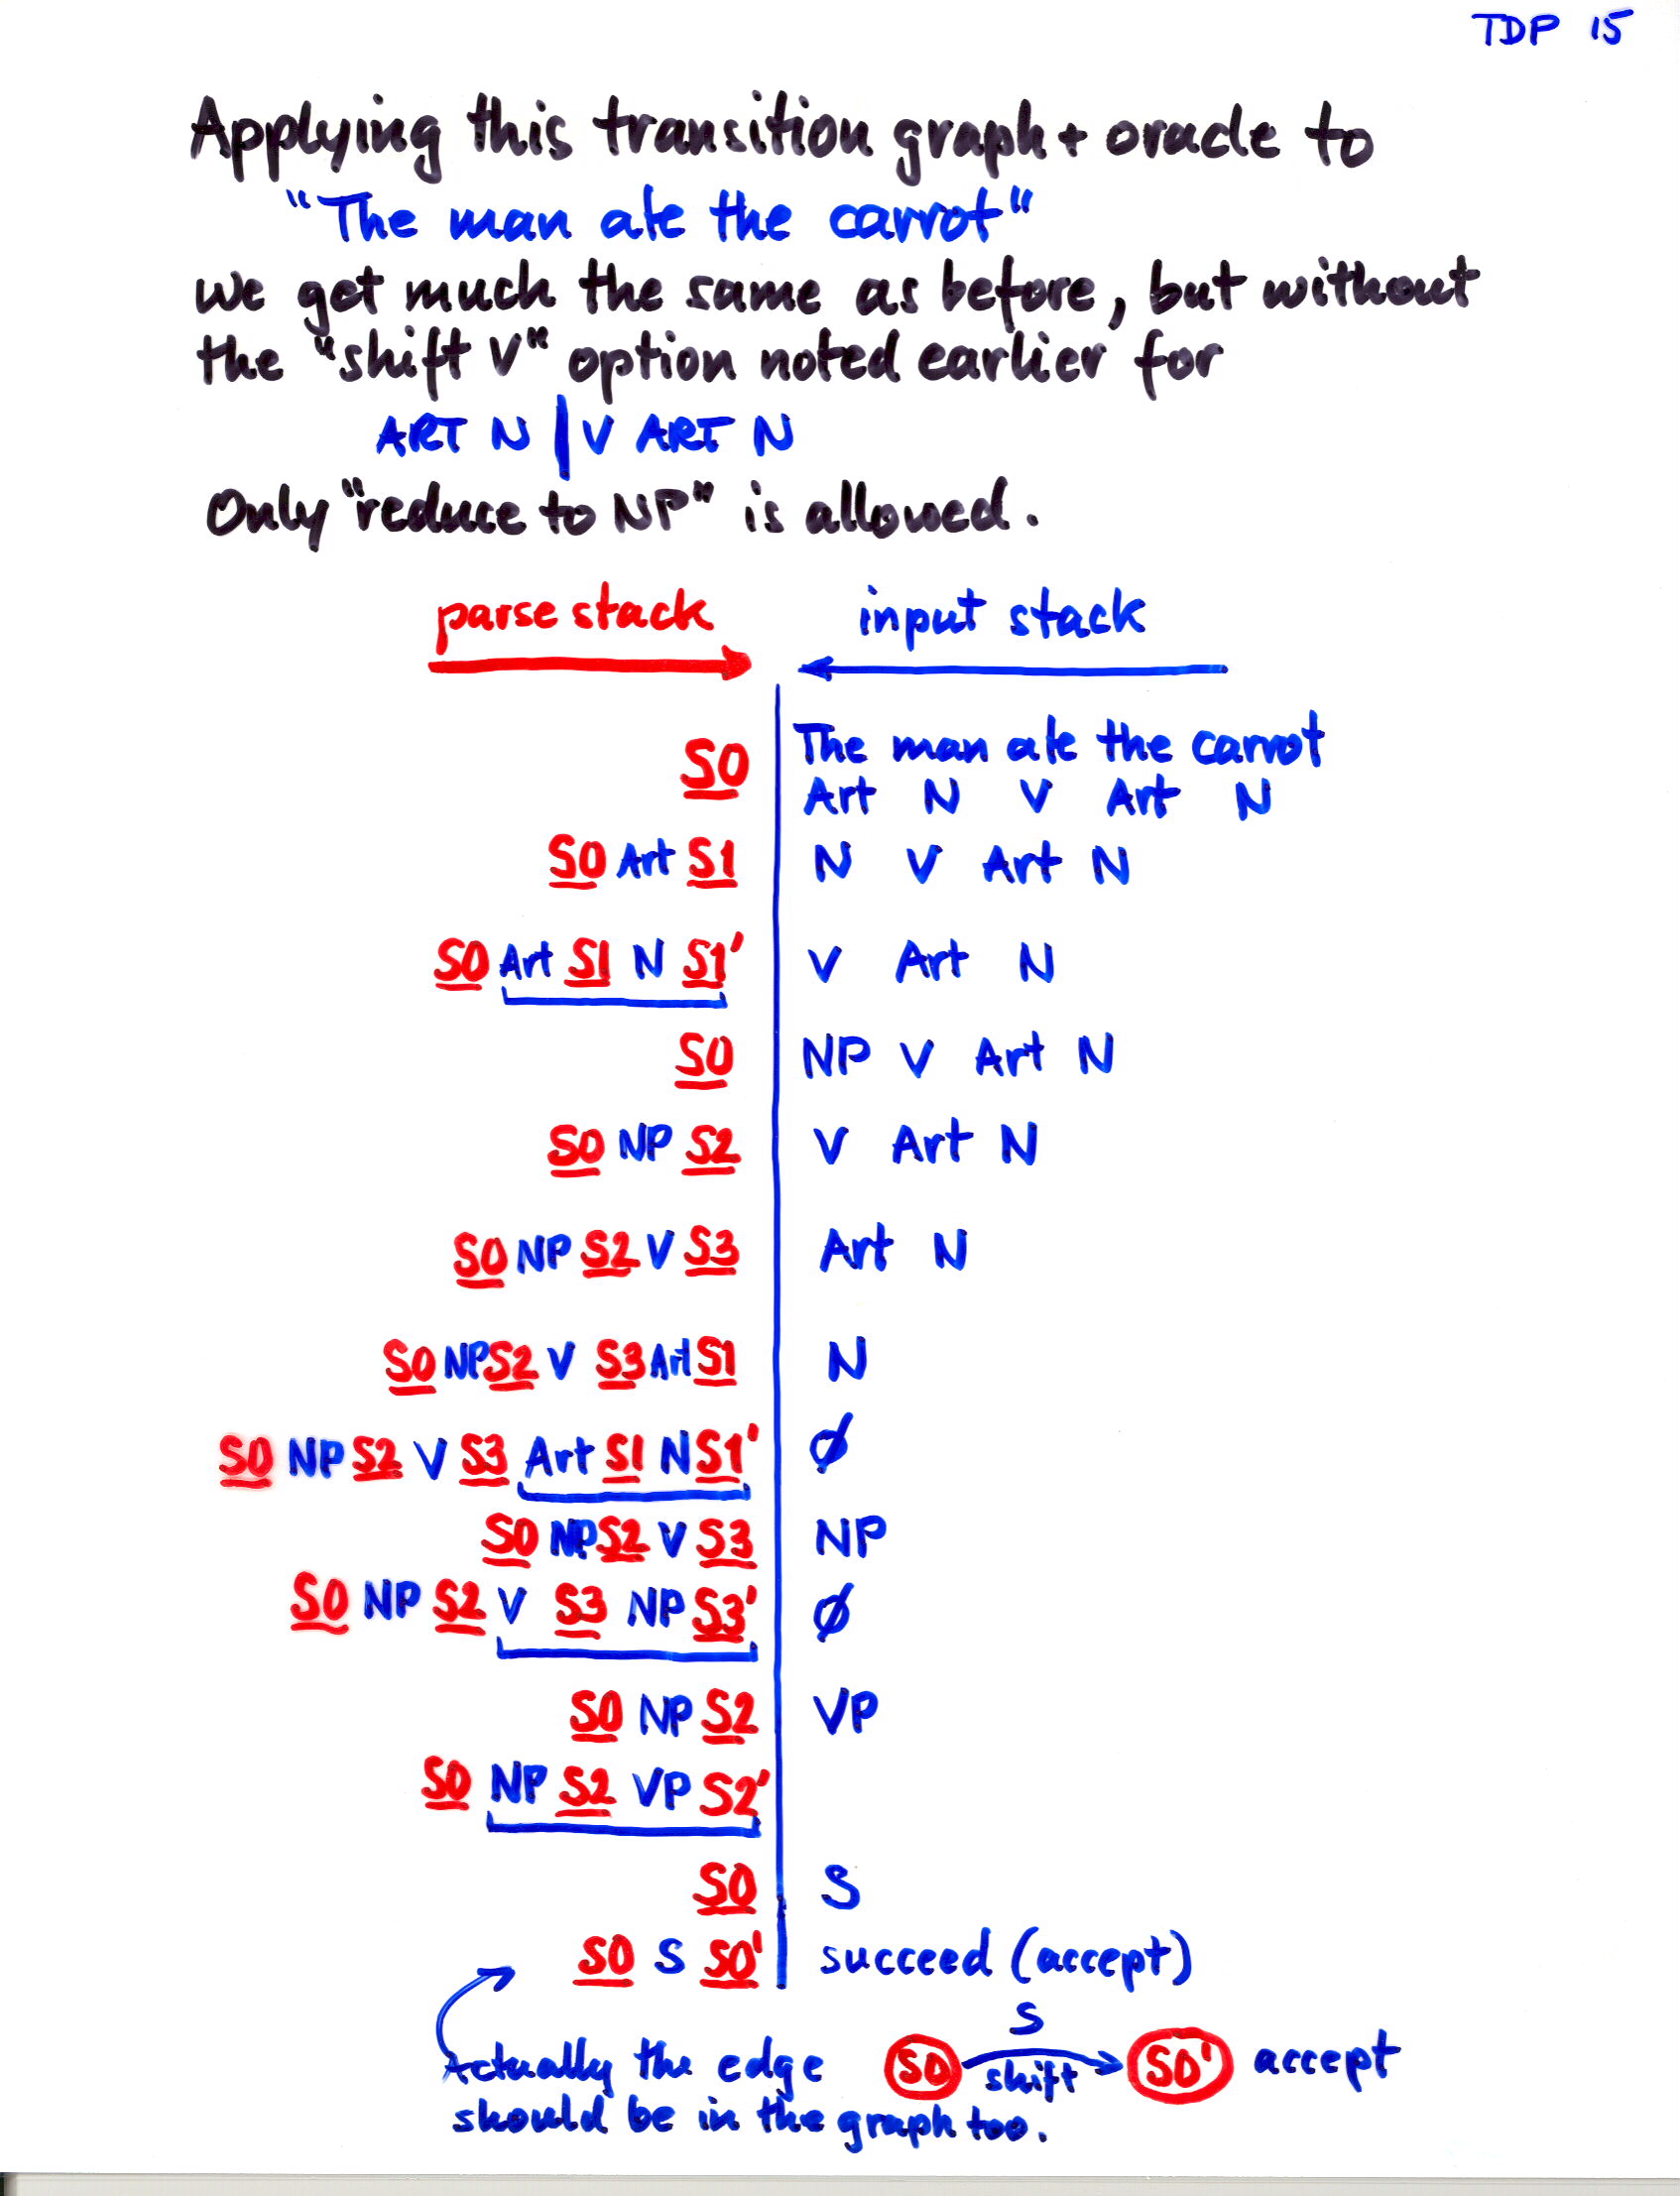 TDP 15
Applying this transition graph + oracle to
"The man ate the carrot"
we get much the same as before, but without
the "shift V" option noted earlier for
ART N | V ART N
Only "reduce to NP" is allowed.
parse stack input stack
S0 The man ate the carrot
Art N V Art N
S0 Art S1 N V Art N
S0 Art S1 N S1' V Art N
S0 NP V Art N
S0 NP S2 V Art N
S0 NP S2 V S3 Art N
S0 NP S2 V S3 Art S1 N
S0 NP S2 V S3 Art S1 N S1' ∅
S0 NP S2 V S3 NP
S0 NP S2 V S3 NP S3' ∅
S0 NP S2 VP
S0 NP S2 VP S2'
S0 S
S0 S S0' succeed (accept)
S
Actually the edge S0 shift S0' accept
should be in the graph too.